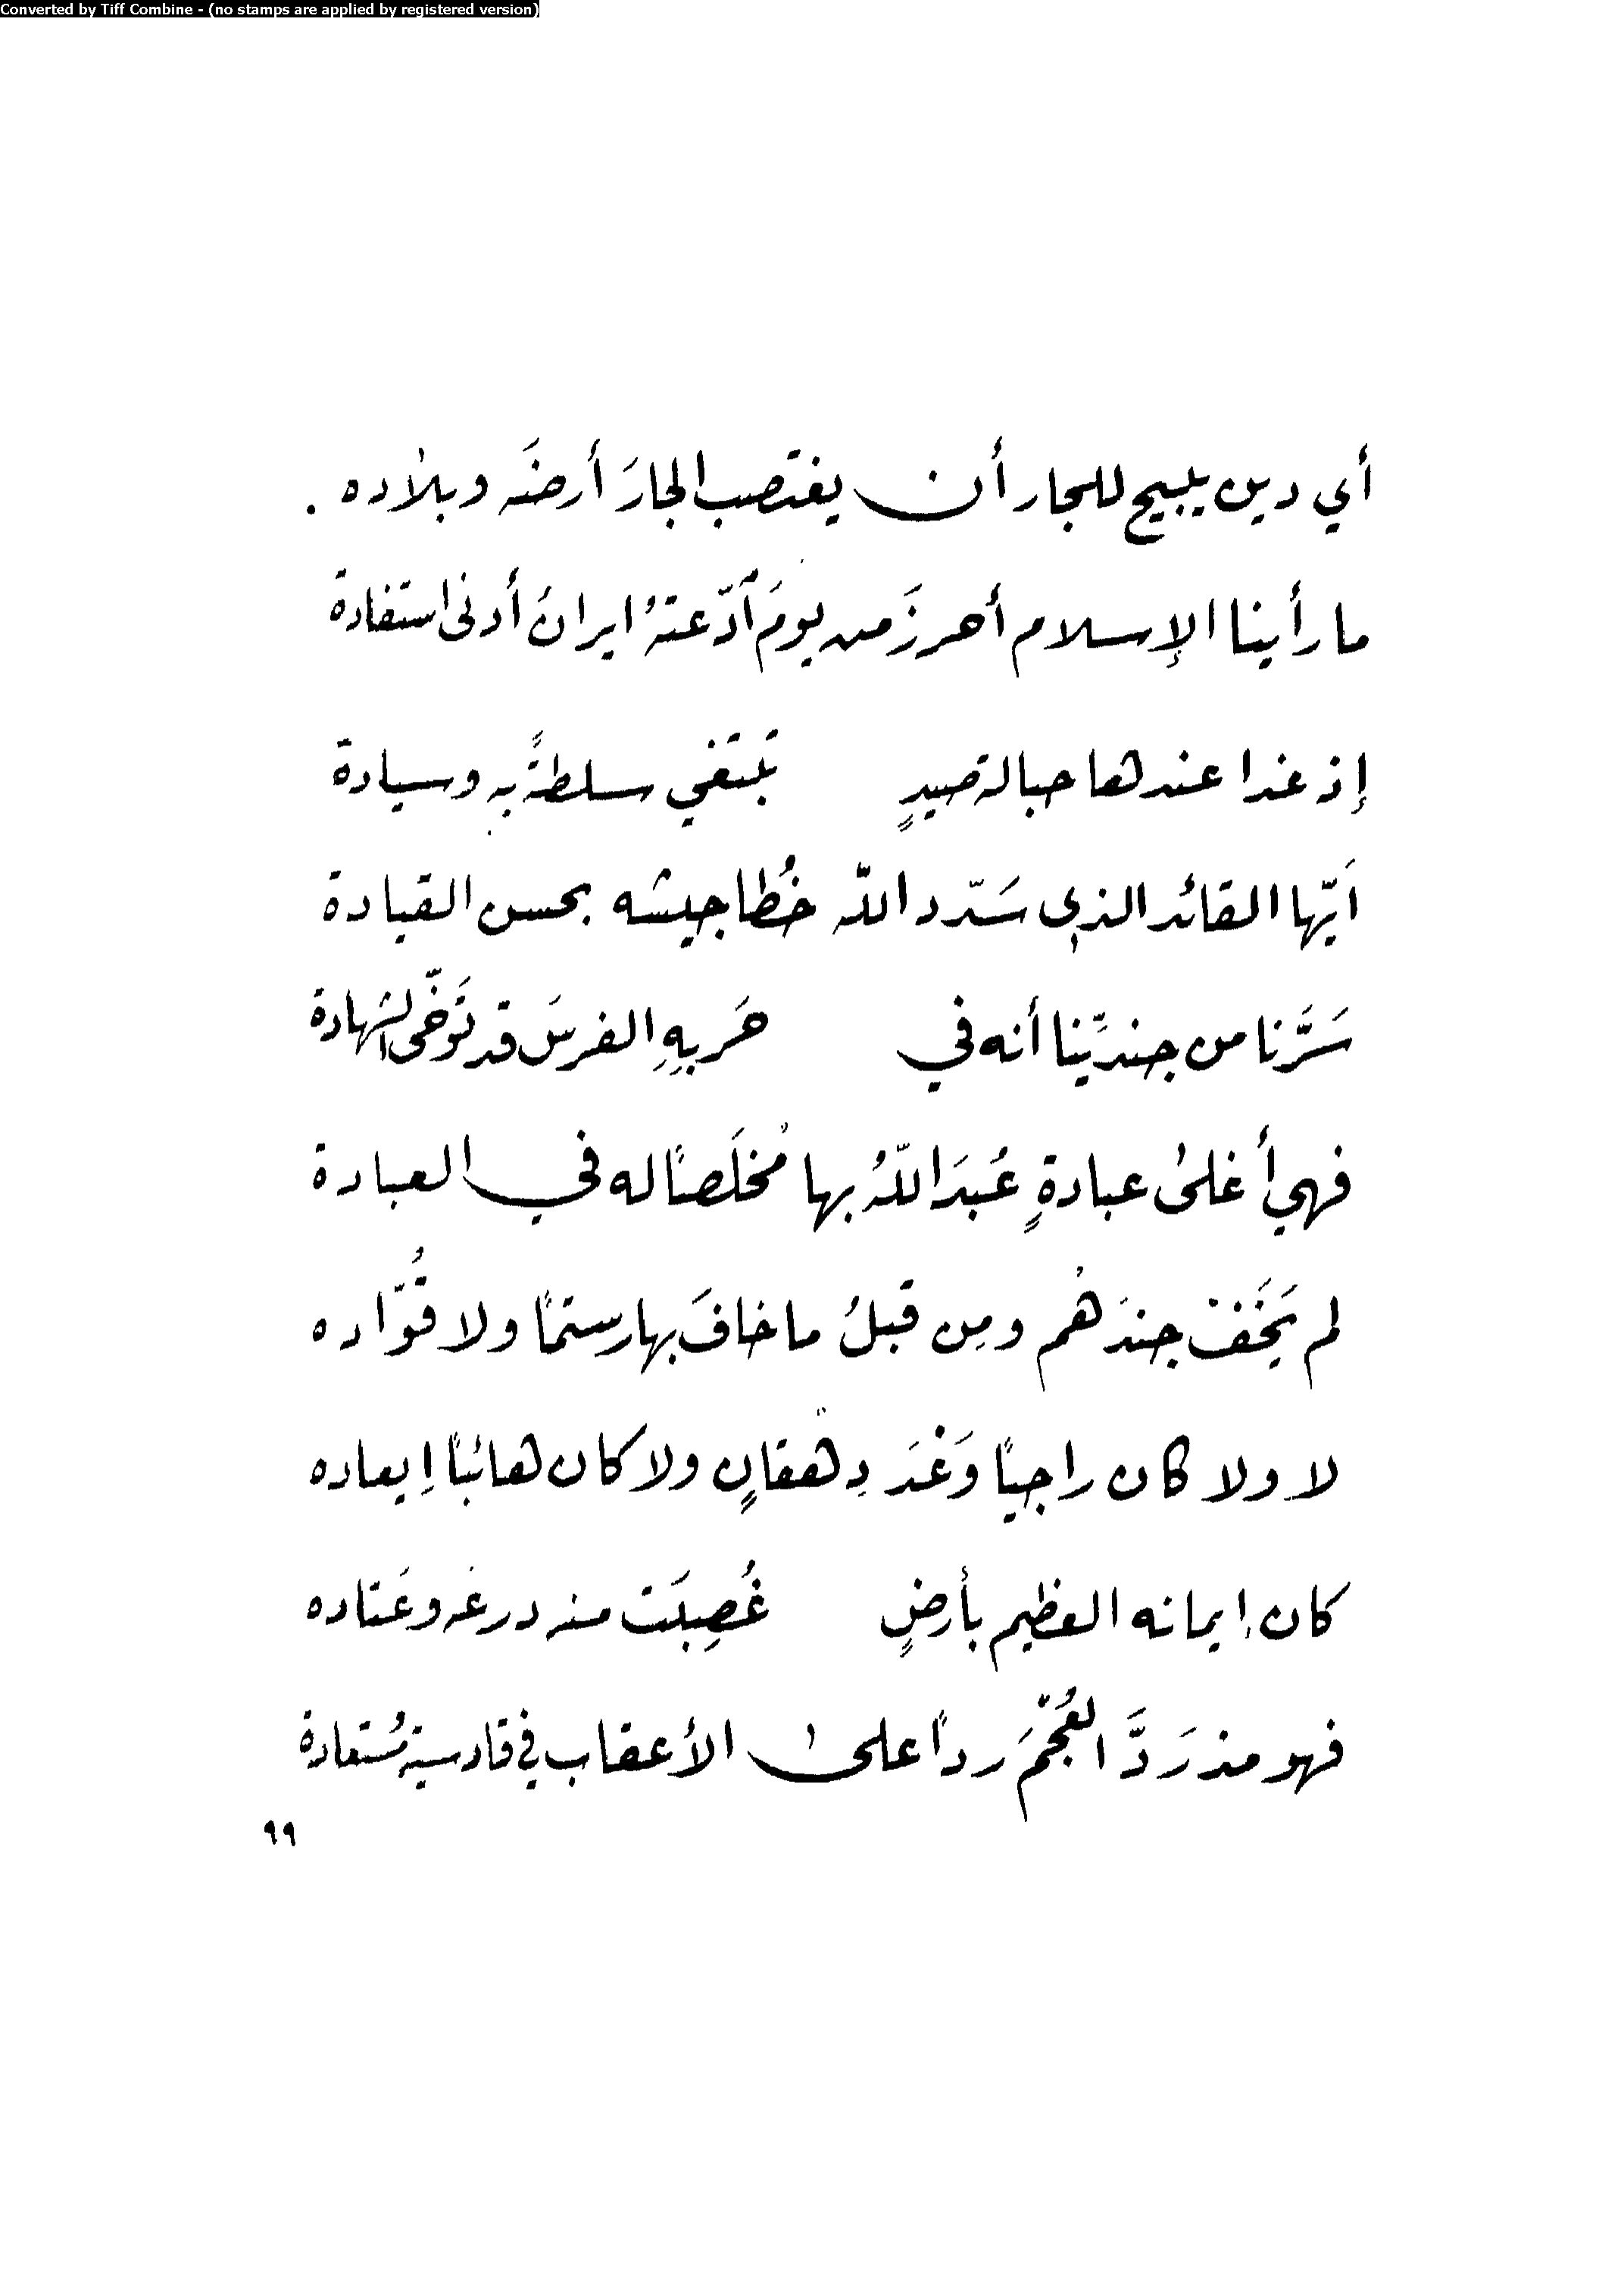 Converted by Tiff Combine - (no stamps are applied by registered version)
أي دين يبيح للجار أن يغتصب الجارَ أرضَه وبلاده .
ما رأينا الإسلام أحرزَ من يومَ ٱدّعتهُ ايرانُ أدنى استفادة
إذ غدا عندها حبالة صيدٍ تبتغي سلطةً به وسيادة
اَيّها القائد الذي سَدّد اللّه خُطا جيشه بحسن القيادة
سَرَّنا من جنديِّنا أنه في حَربِهِ الفرسَ قد تَوَخّى الشهادة
فهي أغلىٰ عبادةٍ عُبدَ اللّهُ بها مُخلَصًا له في العبادة
لم يَخَفْ جندَهُم ومِن قبلُ ما خافَ بها رستمًا ولا قُوّاده
لا ولا كان راجيًا وَغْدَ دِهقانٍ ولا كان هائبًا اِيعاده
كان إيمانه العظيم بأرضٍ غُصِبَت منه درعَه وعَتاده
فهو مذ رَدَّ العُجْمَ ردًا علىٰ الأعقاب في قادسية مُستعادة
٩٩